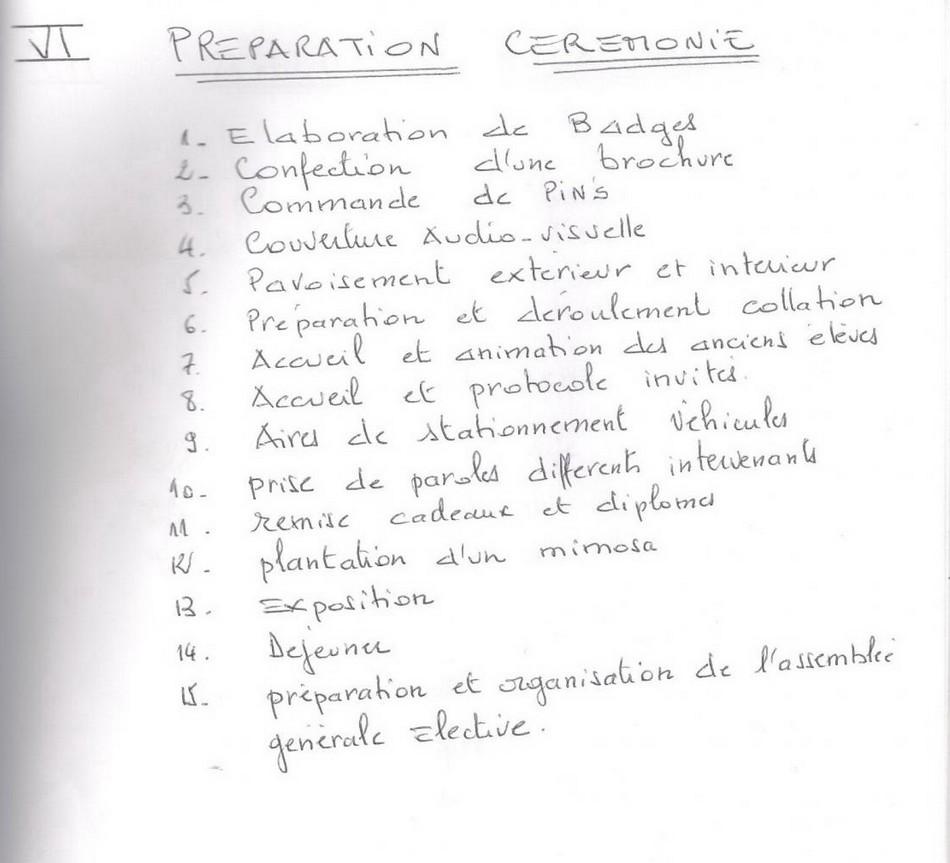 VI PREPARATION CEREMONIE
1- Elaboration de Badges
2- Confection d'une brochure
3. Commande de PiN's
4. Couverture Audio-visuelle
5. Pavoisement exterieur et interieur
6. Préparation et déroulement collation
7. Accueil et animation des anciens élèves
8. Accueil et protocole invités.
9. Aires de stationnement véhicules
10- prise de paroles differents intervenants
11. remise cadeaux et diplomes
12. plantation d'un mimosa
13. Exposition
14. Dejeuner
15- préparation et organisation de l'assemblée
générale Elective.